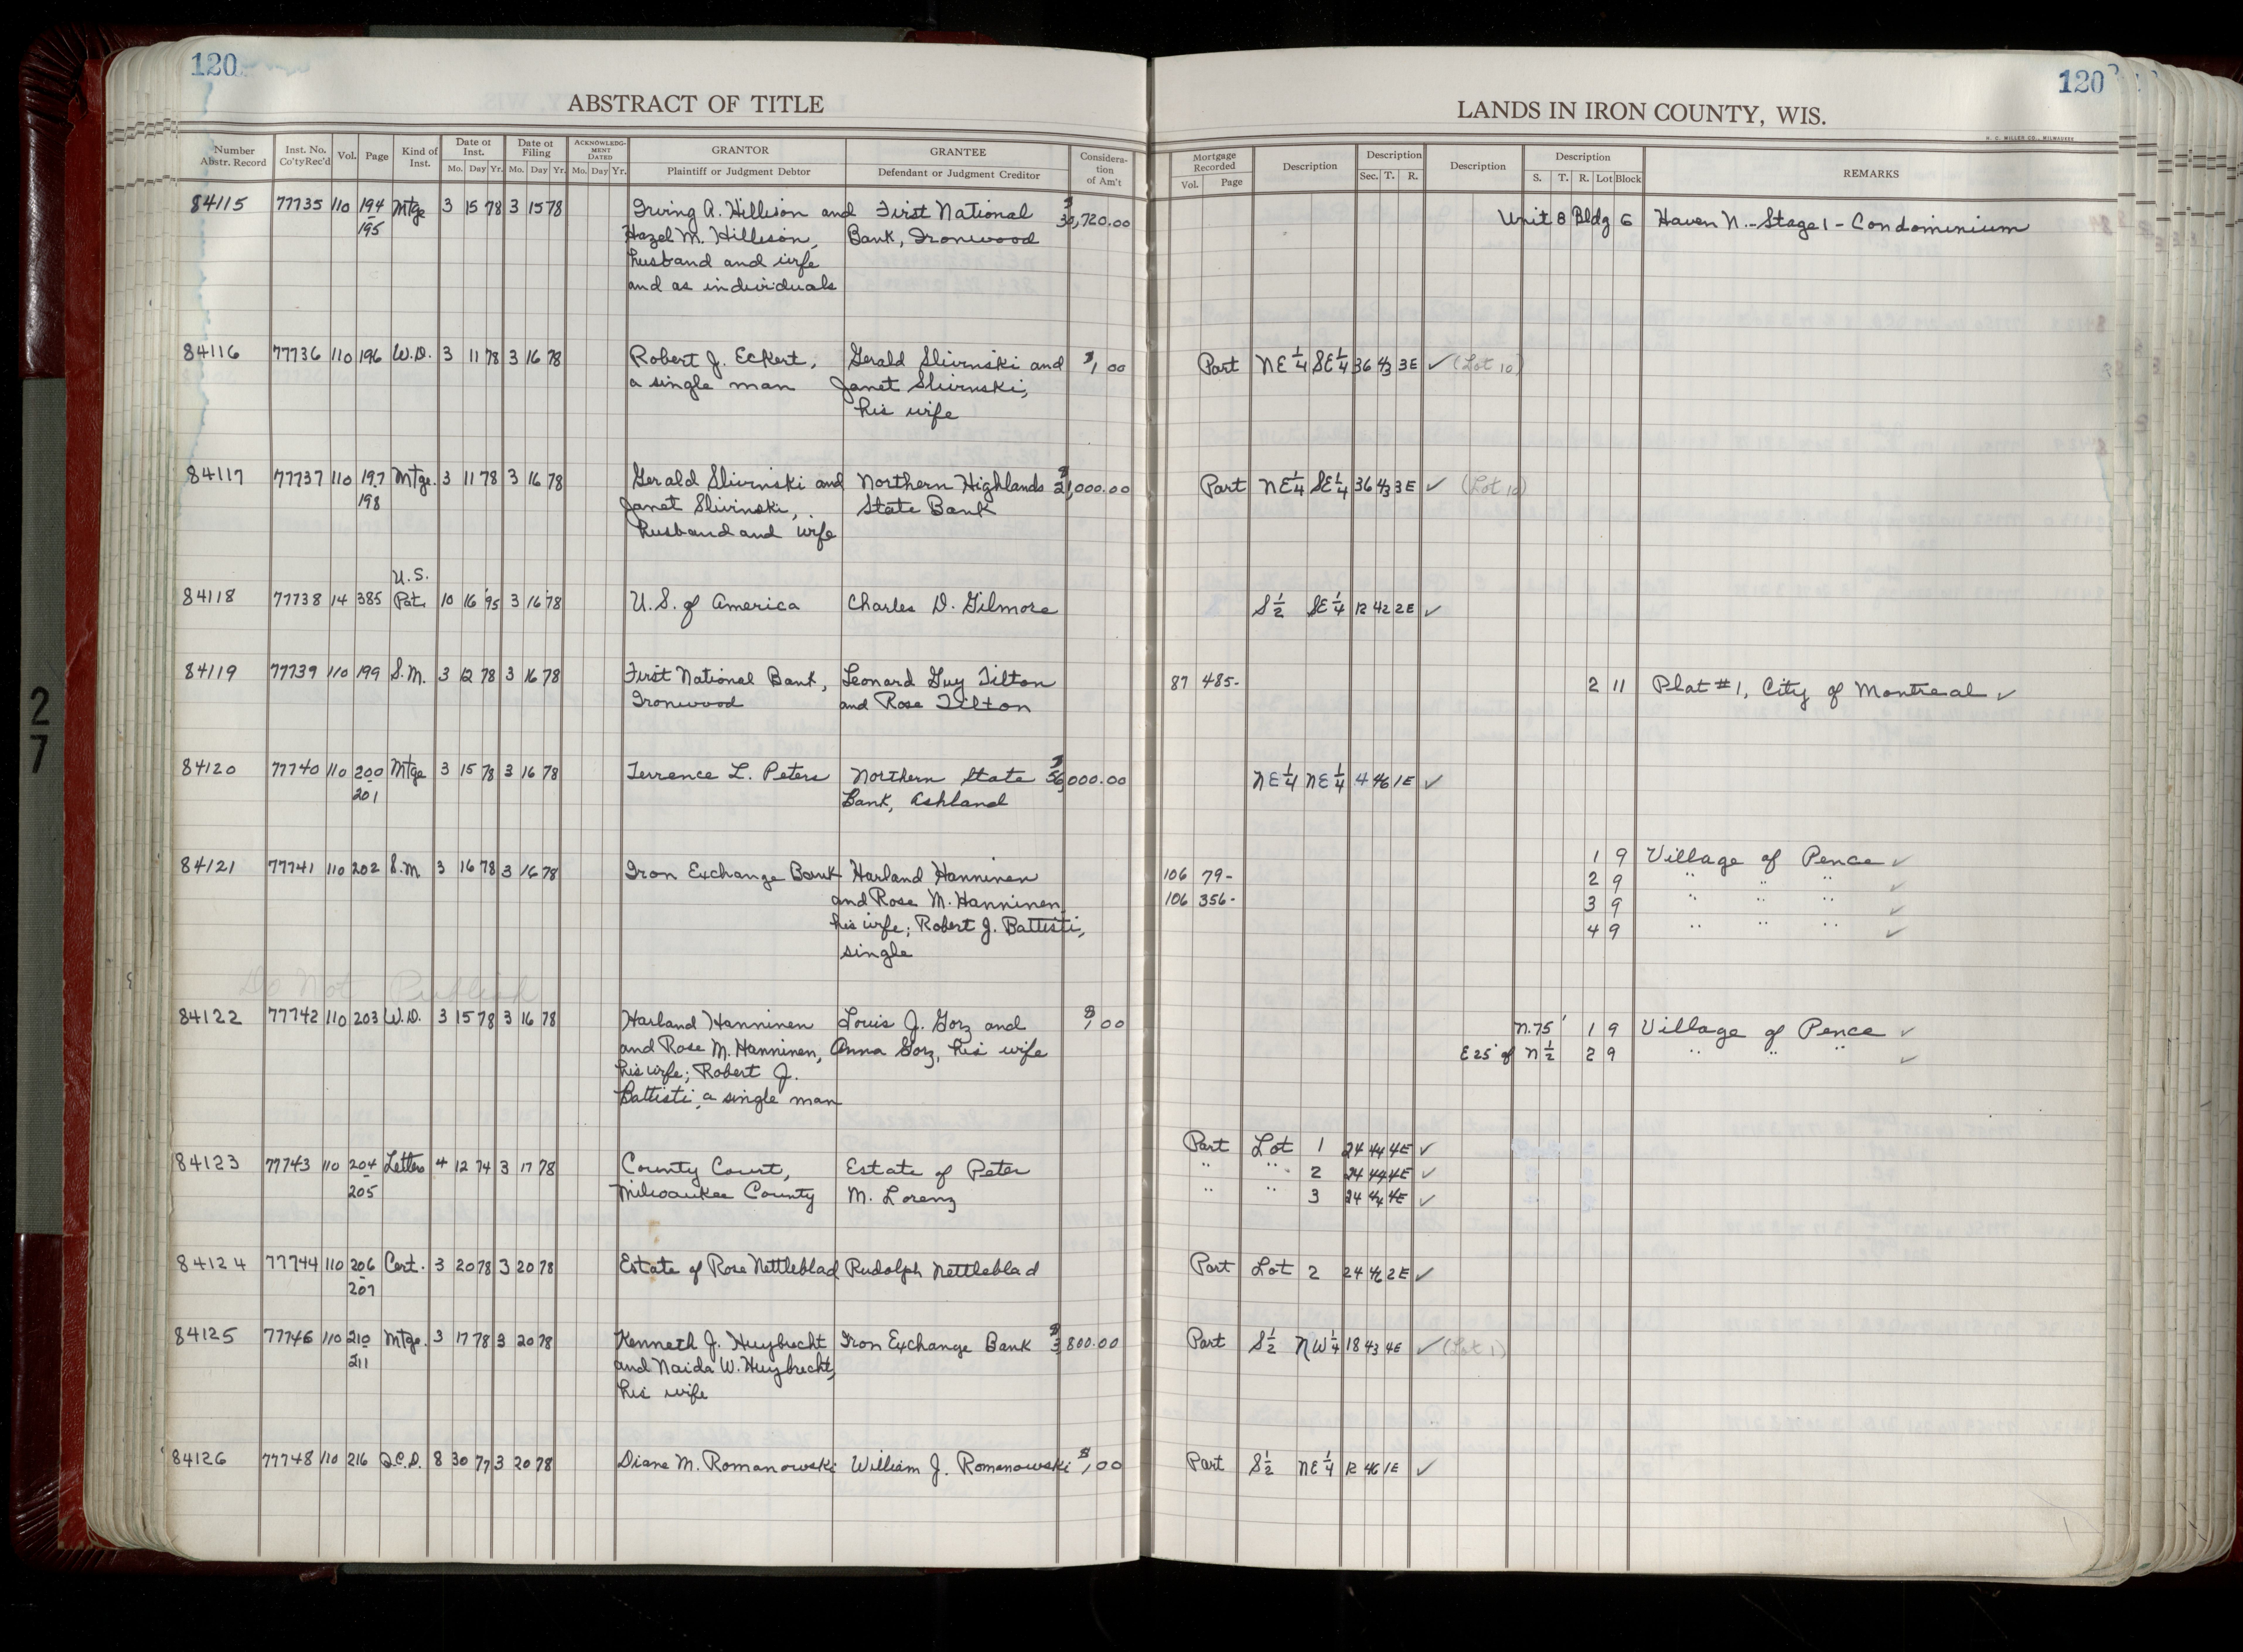 120
ABSTRACT OF TITLE
Number Abstr. Record | Inst. No. Co'ty Rec'd | Vol. | Page | Kind of Inst. | Date of Inst. Mo. Day Yr. | Date of Filing Mo. Day Yr. | ACKNOWLEDG-MENT DATED Mo. Day Yr. | GRANTOR Plaintiff or Judgment Debtor | GRANTEE Defendant or Judgment Creditor | Considera-tion of Am't
84115 77735 110 194 Mtge 3 15 78 3 15 78 Irving A. Hillison and First National $30,720.00
195 Hazel M. Hillison, Bank, Ironwood
husband and wife
and as individuals
84116 77736 110 196 W.D. 3 11 78 3 16 78 Robert J. Eckert, Gerald Slivinski and $1.00
a single man Janet Slivinski,
his wife
84117 77737 110 197 Mtge. 3 11 78 3 16 78 Gerald Slivinski and Northern Highlands $21,000.00
198 Janet Slivinski, State Bank
husband and wife
U.S.
84118 77738 14 385 Pat. 10 16 '95 3 16 '78 U.S. of America Charles D. Gilmore
84119 77739 110 199 S.M. 3 12 78 3 16 78 First National Bank, Leonard Guy Tilton
Ironwood and Rose Tilton
84120 77740 110 200 Mtge 3 15 78 3 16 78 Terrence L. Peters Northern State $56,000.00
201 Bank, Ashland
84121 77741 110 202 S.M. 3 16 78 3 16 78 Iron Exchange Bank Harland Hanninen
and Rose M. Hanninen,
his wife; Robert J. Battisti,
single
Do Not Publish
84122 77742 110 203 W.D. 3 15 78 3 16 78 Harland Hanninen Louis J. Gorz and $1.00
and Rose M. Hanninen, Anna Gorz, his wife
his wife; Robert J.
Battisti, a single man
84123 77743 110 204 Letters 4 12 74 3 17 78 County Court, Estate of Peter
205 Milwaukee County M. Lorenz
84124 77744 110 206 Cert. 3 20 78 3 20 78 Estate of Rose Nettleblad Rudolph Nettleblad
207
84125 77746 110 210 Mtge. 3 17 78 3 20 78 Kenneth J. Huybrecht Iron Exchange Bank $3,800.00
211 and Naida W. Huybrecht,
his wife
84126 77748 110 216 Q.C.D. 8 30 77 3 20 78 Diane M. Romanowski William J. Romanowski $1.00
120
LANDS IN IRON COUNTY, WIS.
H. C. MILLER CO., MILWAUKEE
Mortgage Recorded Vol. Page | Description | Description Sec. T. R. | Description | Description S. T. R. Lot Block | REMARKS
Unit 8 Bldg 6 Haven N.-Stage 1 - Condominium
Part NE 1/4 SE 1/4 36 43 3E ✓ (Lot 10)
Part NE 1/4 SE 1/4 36 43 3E ✓ (Lot 10)
S 1/2 SE 1/4 12 42 2E ✓
87 485- 2 11 Plat #1, City of Montreal ✓
NE 1/4 NE 1/4 4 46 1E ✓
1 9 Village of Pence ✓
106 79- 2 9 " " " ✓
106 356- 3 9 " " " ✓
4 9 " " " ✓
N. 75' 1 9 Village of Pence ✓
E 25' of N 1/2 2 9 " " " ✓
Part Lot 1 24 44 4E ✓
" " 2 24 44 4E ✓
" " 3 24 44 4E ✓
Part Lot 2 24 46 2E ✓
Part S 1/2 NW 1/4 18 43 4E ✓ (Lot 1)
Part S 1/2 NE 1/4 12 46 1E ✓
27